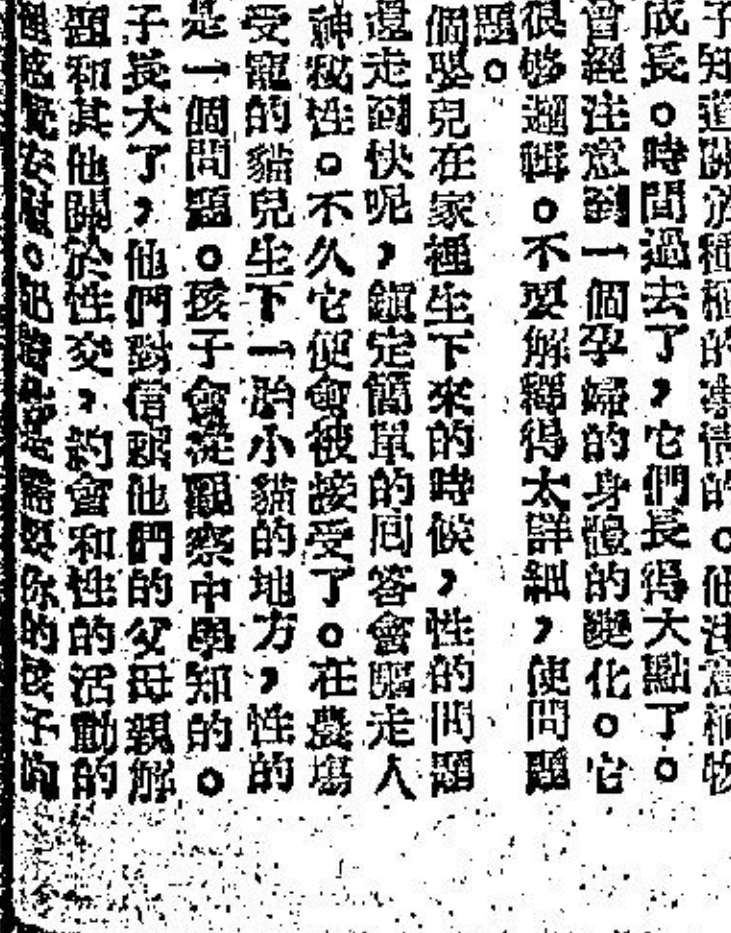 子知道關於種植的事情的。他注意植物
成長。時間過去了，它們長得大點了。
會經注意到一個孕婦的身體的變化。它
很夠邏輯。不要解釋得太詳細，使問題
題。
個嬰兒在家裡生下來的時候，性的問題
還走到快呢，鎮定簡單的回答會驅走人
神秘性。不久它便會被接受了。在農場
受寵的貓兒生下一胎小貓的地方，性的
是一個問題。孩子會從觀察中學知的。
子長大了，他們對信賴他們的父母親解
題和其他關於性交，約會和性的活動的
安慰。記着是需要你的孩子向